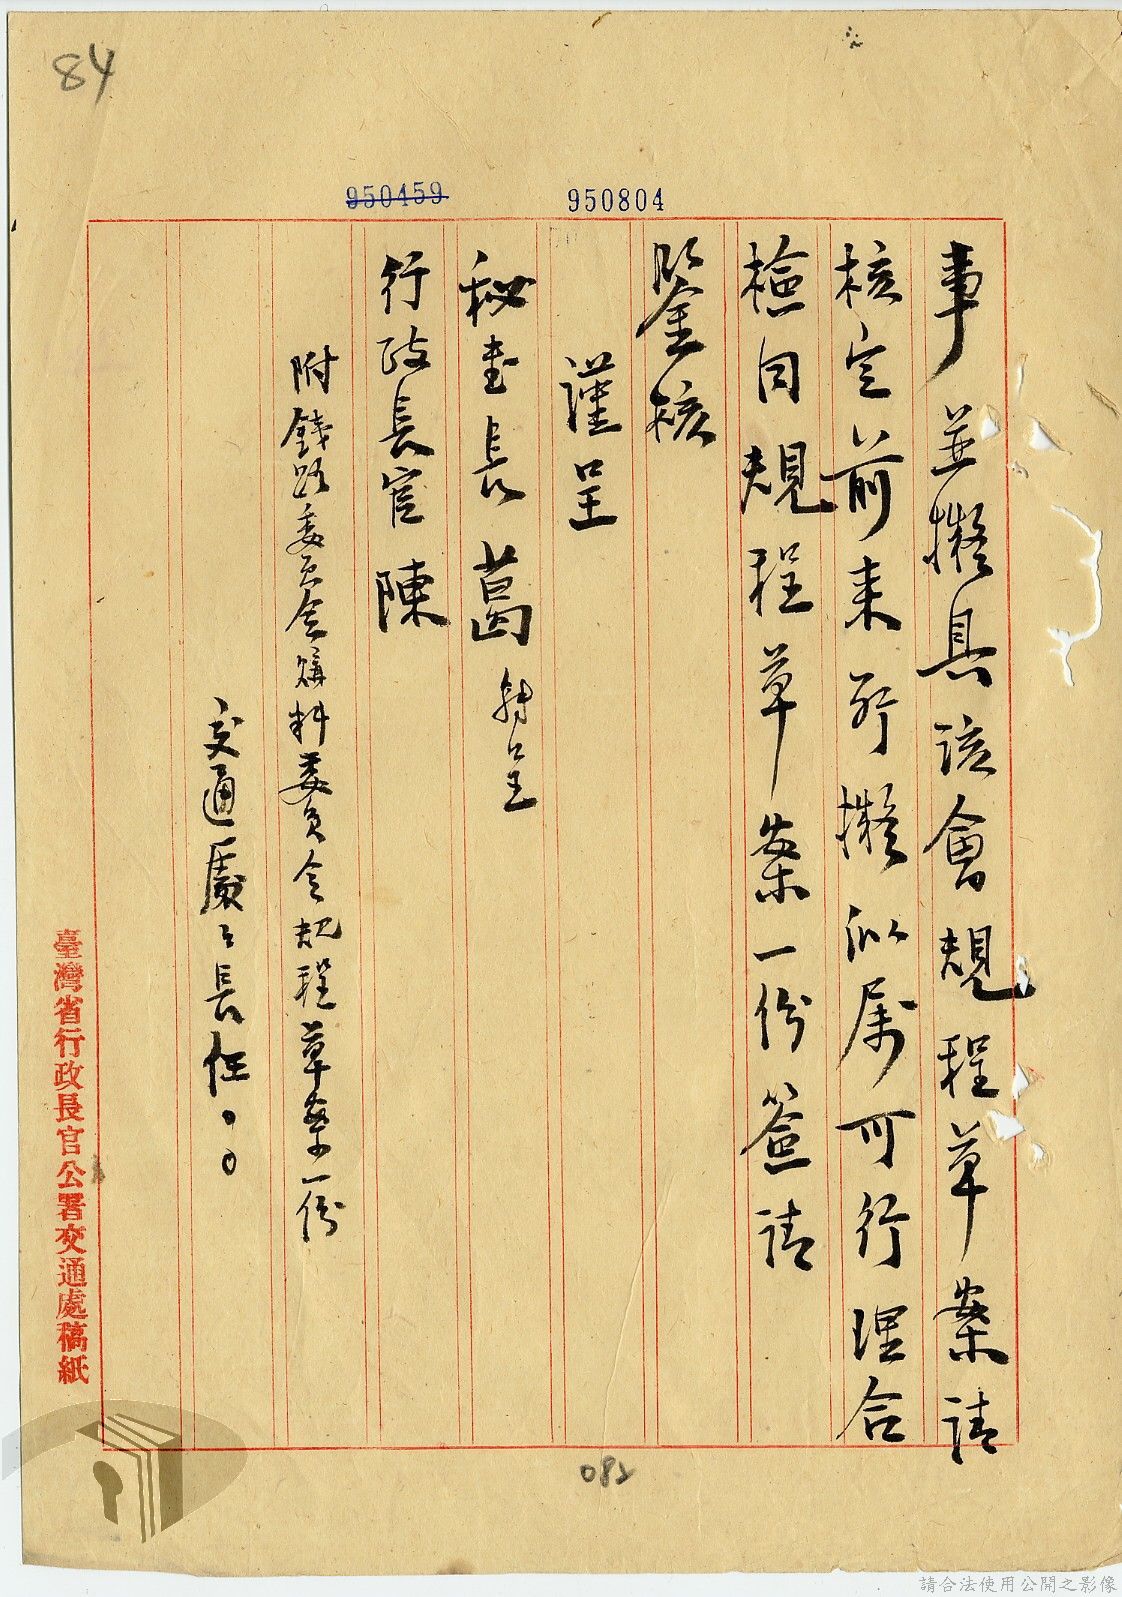 84
950459
950804
事並擬具該會規程草案請
核定前来所擬似屬可行理合
檢同規程草案一份簽請
鑒核
謹呈
秘書長葛 轉呈
行政長官陳
附鉄路委員会購料委員会規程草案一份
交通處々長任○○
臺灣省行政長官公署交通處稿紙
082
請合法使用公開之影像